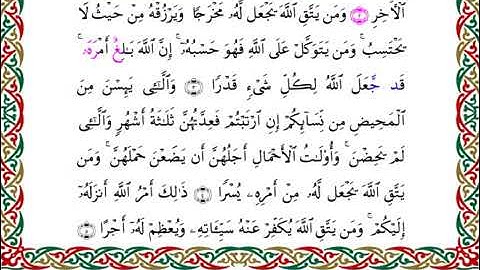 الْأَخِرِ ۝٢ وَمَن يَتَّقِ اللَّهَ يَجْعَل لَّهُۥ مَخْرَجًا وَيَرْزُقْهُ مِنْ حَيْثُ لَا
يَحْتَسِبُ ۚ وَمَن يَتَوَكَّلْ عَلَى اللَّهِ فَهُوَ حَسْبُهُۥٓ ۚ إِنَّ اللَّهَ بَـٰلِغٌ أَمْرَهُۥ ۚ
قَد جَّعَلَ اللَّهُ لِكُلِّ شَىْءٍ قَدْرًا ۝٣ وَالَّـٰٓـِٔى يَئِسْنَ مِنَ
الْمَحِيضِ مِن نِّسَآئِكُمْ إِنِ ارْتَبْتُمْ فَعِدَّتُهُنَّ ثَلَـٰثَةُ أَشْهُرٍ وَالَّـٰٓـِٔى
لَمْ يَحِضْنَ ۚ وَأُوْلَـٰتُ الْأَحْمَالِ أَجَلُهُنَّ أَن يَضَعْنَ حَمْلَهُنَّ ۚ وَمَن
يَتَّقِ اللَّهَ يَجْعَل لَّهُۥ مِنْ أَمْرِهِۦ يُسْرًا ۝٤ ذَٰلِكَ أَمْرُ اللَّهِ أَنزَلَهُۥٓ
إِلَيْكُمْ ۚ وَمَن يَتَّقِ اللَّهَ يُكَفِّرْ عَنْهُ سَيِّـَٔاتِهِۦ وَيُعْظِمْ لَهُۥٓ أَجْرًا ۝٥